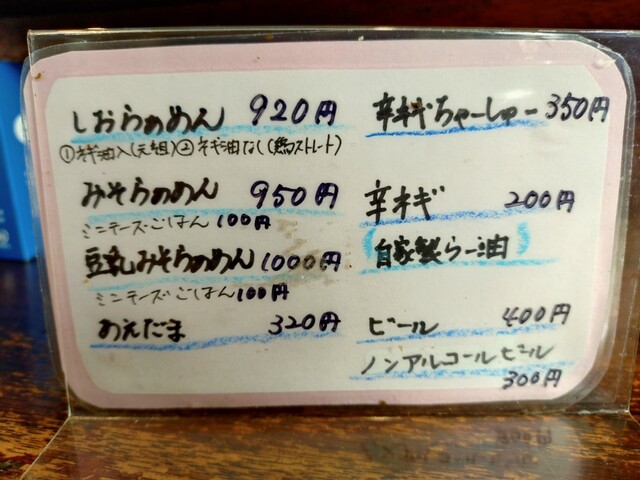 しおらぁめん 920円
①ネギ油入(元祖)②ネギ油なし(鶏ストレート)
みそらぁめん 950円
ミニチーズごはん100円
豆乳みそらぁめん 1000円
ミニチーズごはん100円
あえだま 320円
辛ネギちゃーしゅー 350円
辛ネギ 200円
自家製らー油
ビール 400円
ノンアルコールビール
300円